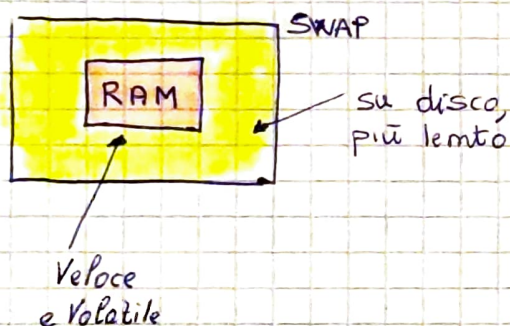 SWAP
RAM
su disco,
più lento
Veloce
e Volatile